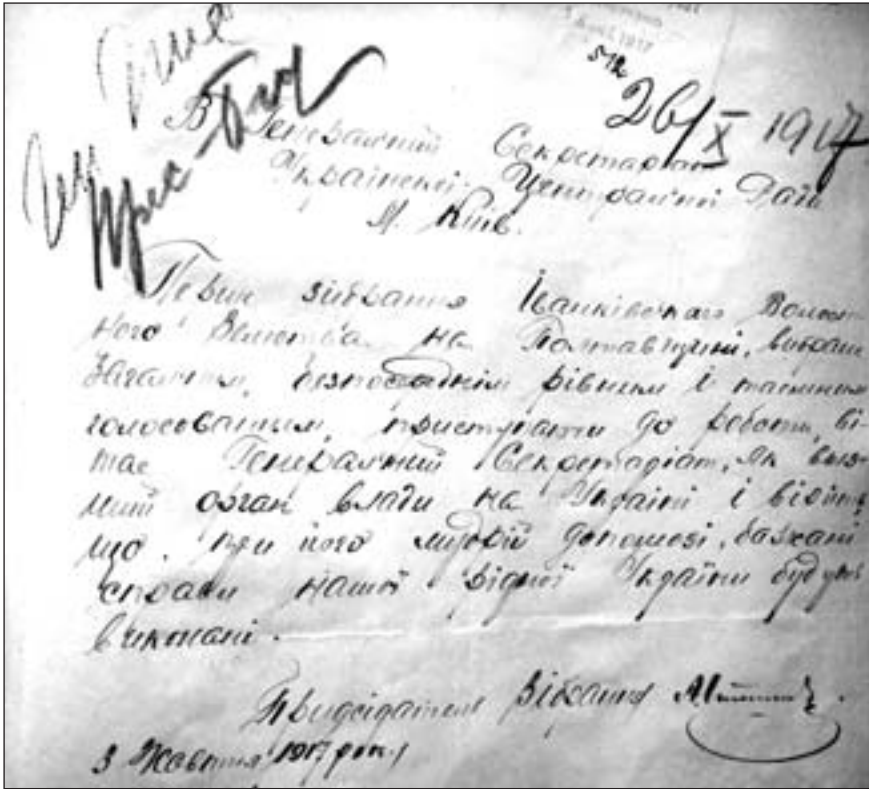 512
26/X 1917
В Генеральний Секретаріят
Української Центральної Ради
М. Київ.
Перше зібрання Іванківского Волост
ного Земства на Полтавщині, вибране
загальним, безпосереднім рівним і таємним
голосованьем, приступаючи до роботи, ві-
тає Генеральний Секретаріят, як виз-
ший орган влади на Україні і вірить
що при його мудрій допомозі, бажані
справи нашої рідної України будуть
виконані.
Придсідатель Зібрання
3 Жовтня 1917 року